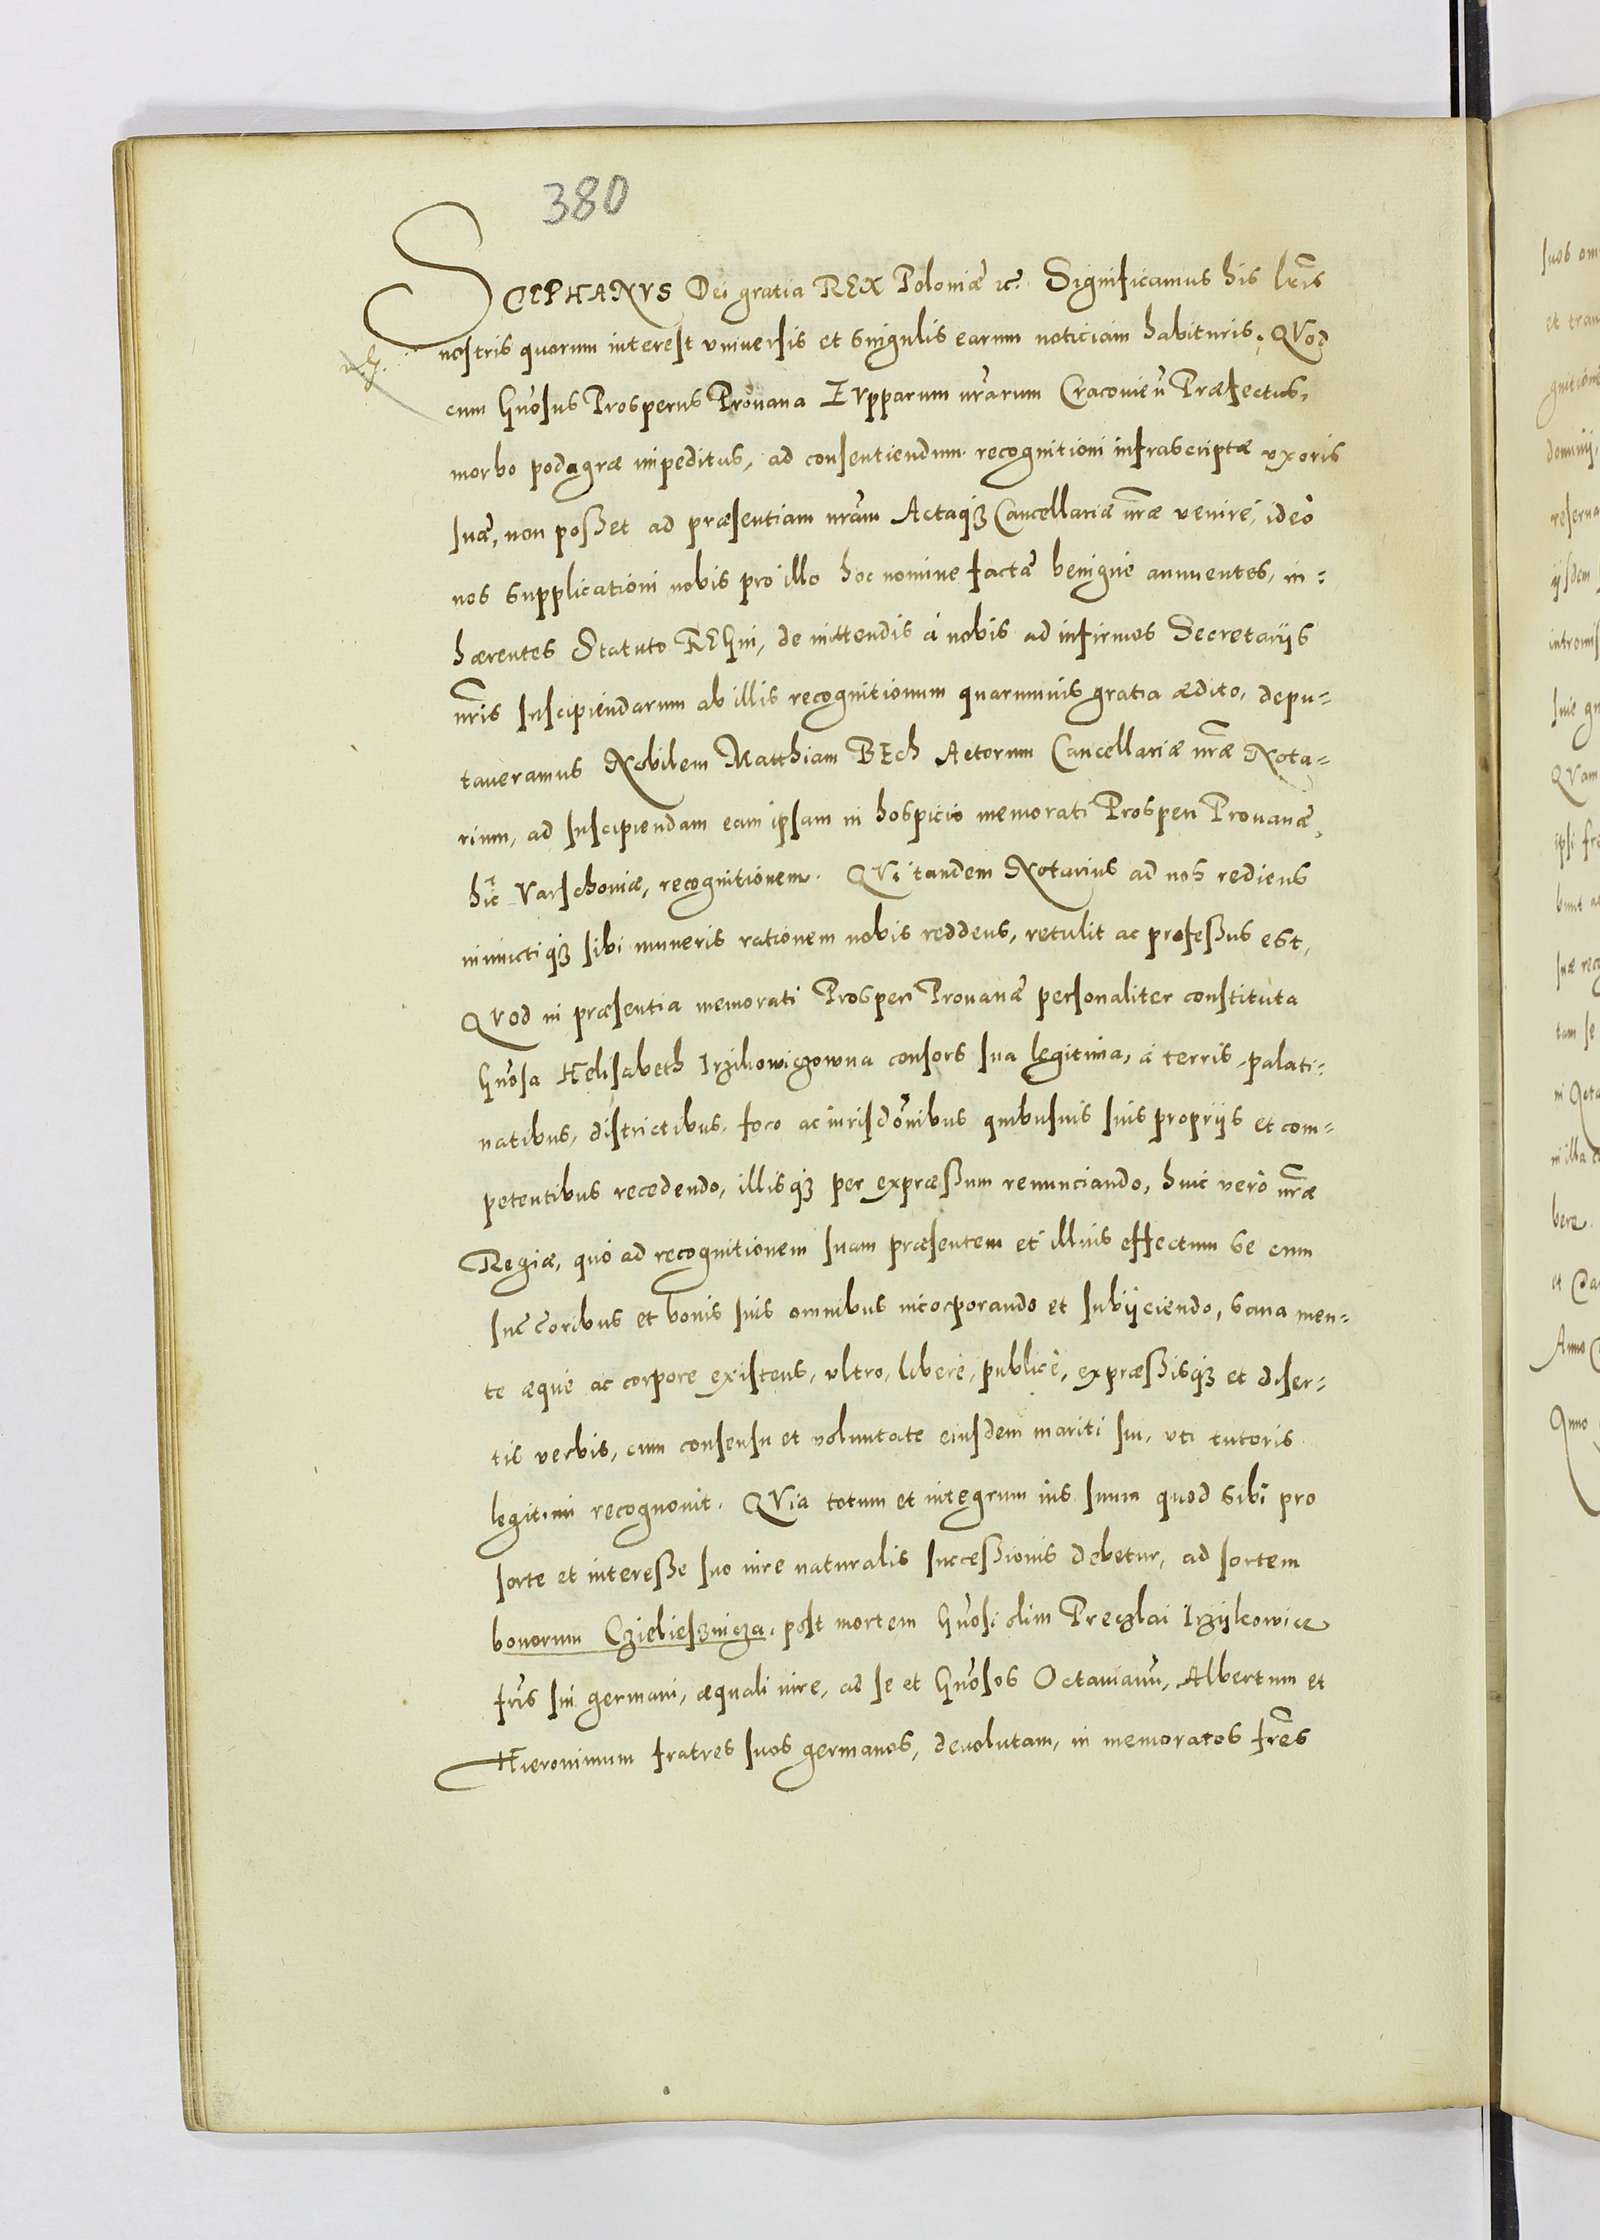 380
STEPHANVS Dei gratia REX Poloniæ etc. Significamus his lr̃is
nostris quorum interest vniuersis et singulis earum noticiam habituris. QVod
cum Gñosus Prosperus Prouana ZVpparum nr̃arum Cracouieñ Præfectus,
morbo podagræ impeditus, ad consentiendum recognitioni infrascriptæ vxoris
suæ, non posset ad præsentiam nr̃am Actaqꝫ Cancellariæ nr̃æ venire, ideo
nos supplicationi nobis pro illo hoc nomine factæ benignè annuentes, in=
hærentes Statuto REGni, de mittendis à nobis ad infirmos Secretariis
nr̃is suscipiendarum ab illis recognitionum quarumuis gratia ædito, depu=
taueramus Nobilem Matthiam BEch Actorum Cancellariæ nr̃æ Nota=
rium, ad suscipiendam eam ipsam in hospicio memorati Prosperi Prouanæ,
hîc Varschouiæ, recognitionem. QVi tandem Notarius ad nos rediens
iniunctiqꝫ sibi muneris rationem nobis reddens, retulit ac professus est,
QVod in præsentia memorati Prosperi Prouanæ personaliter constituta
Gñosa Helisabeth Irzikowiczowna consors sua legitima, à terris, palati=
natibus, districtibus, foco ac iurisdõnibus quibusuis suis propriis et com=
petentibus recedendo, illisqꝫ per expræssum renunciando, huic verò nr̃æ
Regiæ, quò ad recognitionem suam præsentem et illius effectum se cum
succ̃oribus et bonis suis omnibus incorporando et subijciendo, sana men=
te æquè ac corpore existens, vltro, liberè, publicè, expræssisqꝫ et diser=
tis verbis, cum consensu et voluntate eiusdem mariti sui, vti tutoris
legitimi recognouit. QVia totum et integrum ius suum quod sibi pro
sorte et interesse suo iure naturalis successionis debetur, ad sortem
bonorum Czieliesznicza, post mortem Gñosi olim Preczlai Irzijkowicz
fr̃is sui germani, æquali iure, ad se et Gñosos Octauianũ, Albertum et
Hieronimum fratres suos germanos, deuolutam, in memoratos fr̃es